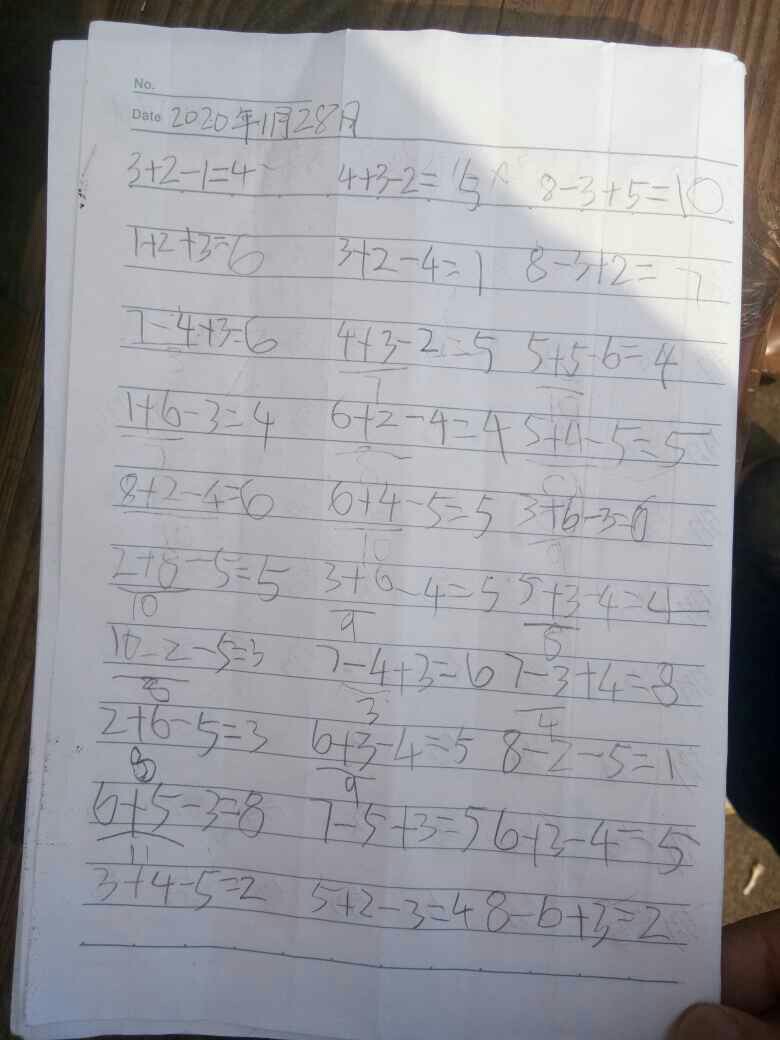 No.
Date 2020年1月28日
3+2-1=4 4+3-2=5 8-3+5=10
1+2+3=6 3+2-4=1 8-3+2=7
7-4+3=6 4+3-2=5 5+5-6=4
7 10
1+6-3=4 6+2-4=4 5+4-5=5
8+2-4=6 6+4-5=5 3+6-3=6
10 9
2+8-5=5 3+6-4=5 5+3-4=4
10 9 8
10-2-5=3 7-4+3=6 7-3+4=8
8 3 4
2+6-5=3 6+3-4=5 8-2-5=1
8 9
6+5-3=8 7-5+3=5 6+3-4=5
11
3+4-5=2 5+2-3=4 8-6+3=2